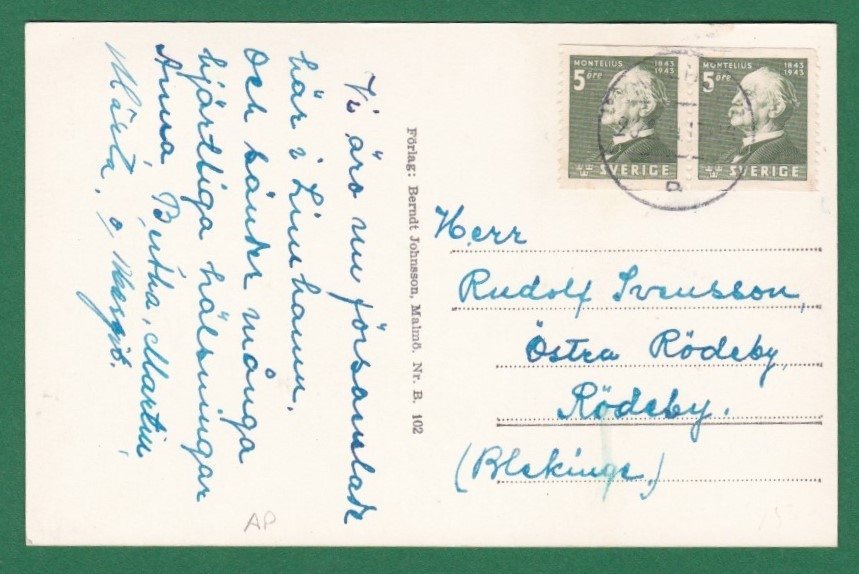 Vi äro nu församlade
här i Limhamn.
Och sänder många
hjärtliga hälsningar
Anna, Bertha, Martin,
Märta, o,
Förlag: Berndt Johnsson, Malmö. Nr. B. 102
MONTELIUS 1843
1943
5 öre
SVERIGE
MONTELIUS 1843
1943
5 öre
SVERIGE
Herr
Rudolf Svensson,
Östra Rödeby,
Rödeby.
(Blekinge,)
AP